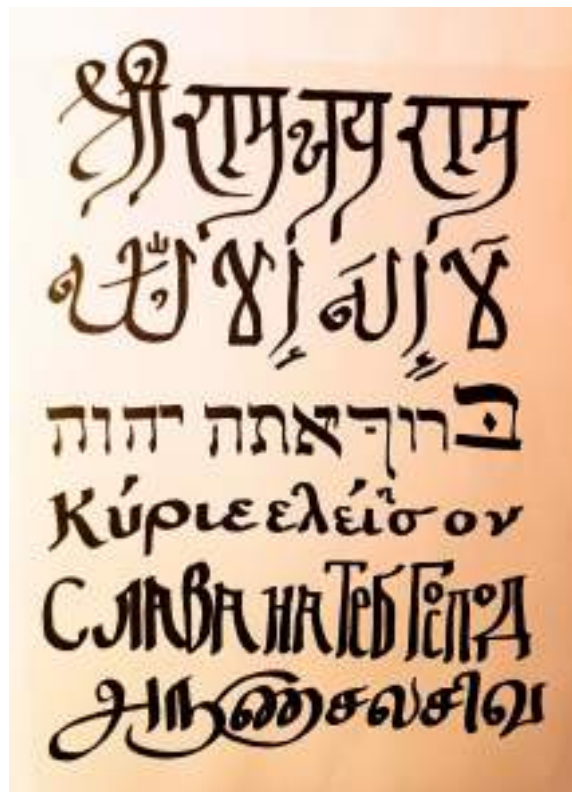 श्री राम जय राम
لَا إِلَٰهَ إِلَّا اللّٰه
בּרוך אתה יהוה
Κύριε ελέησον
СЛАВА НА ТЕБ ГОСПОД
அருணாசலசிவ